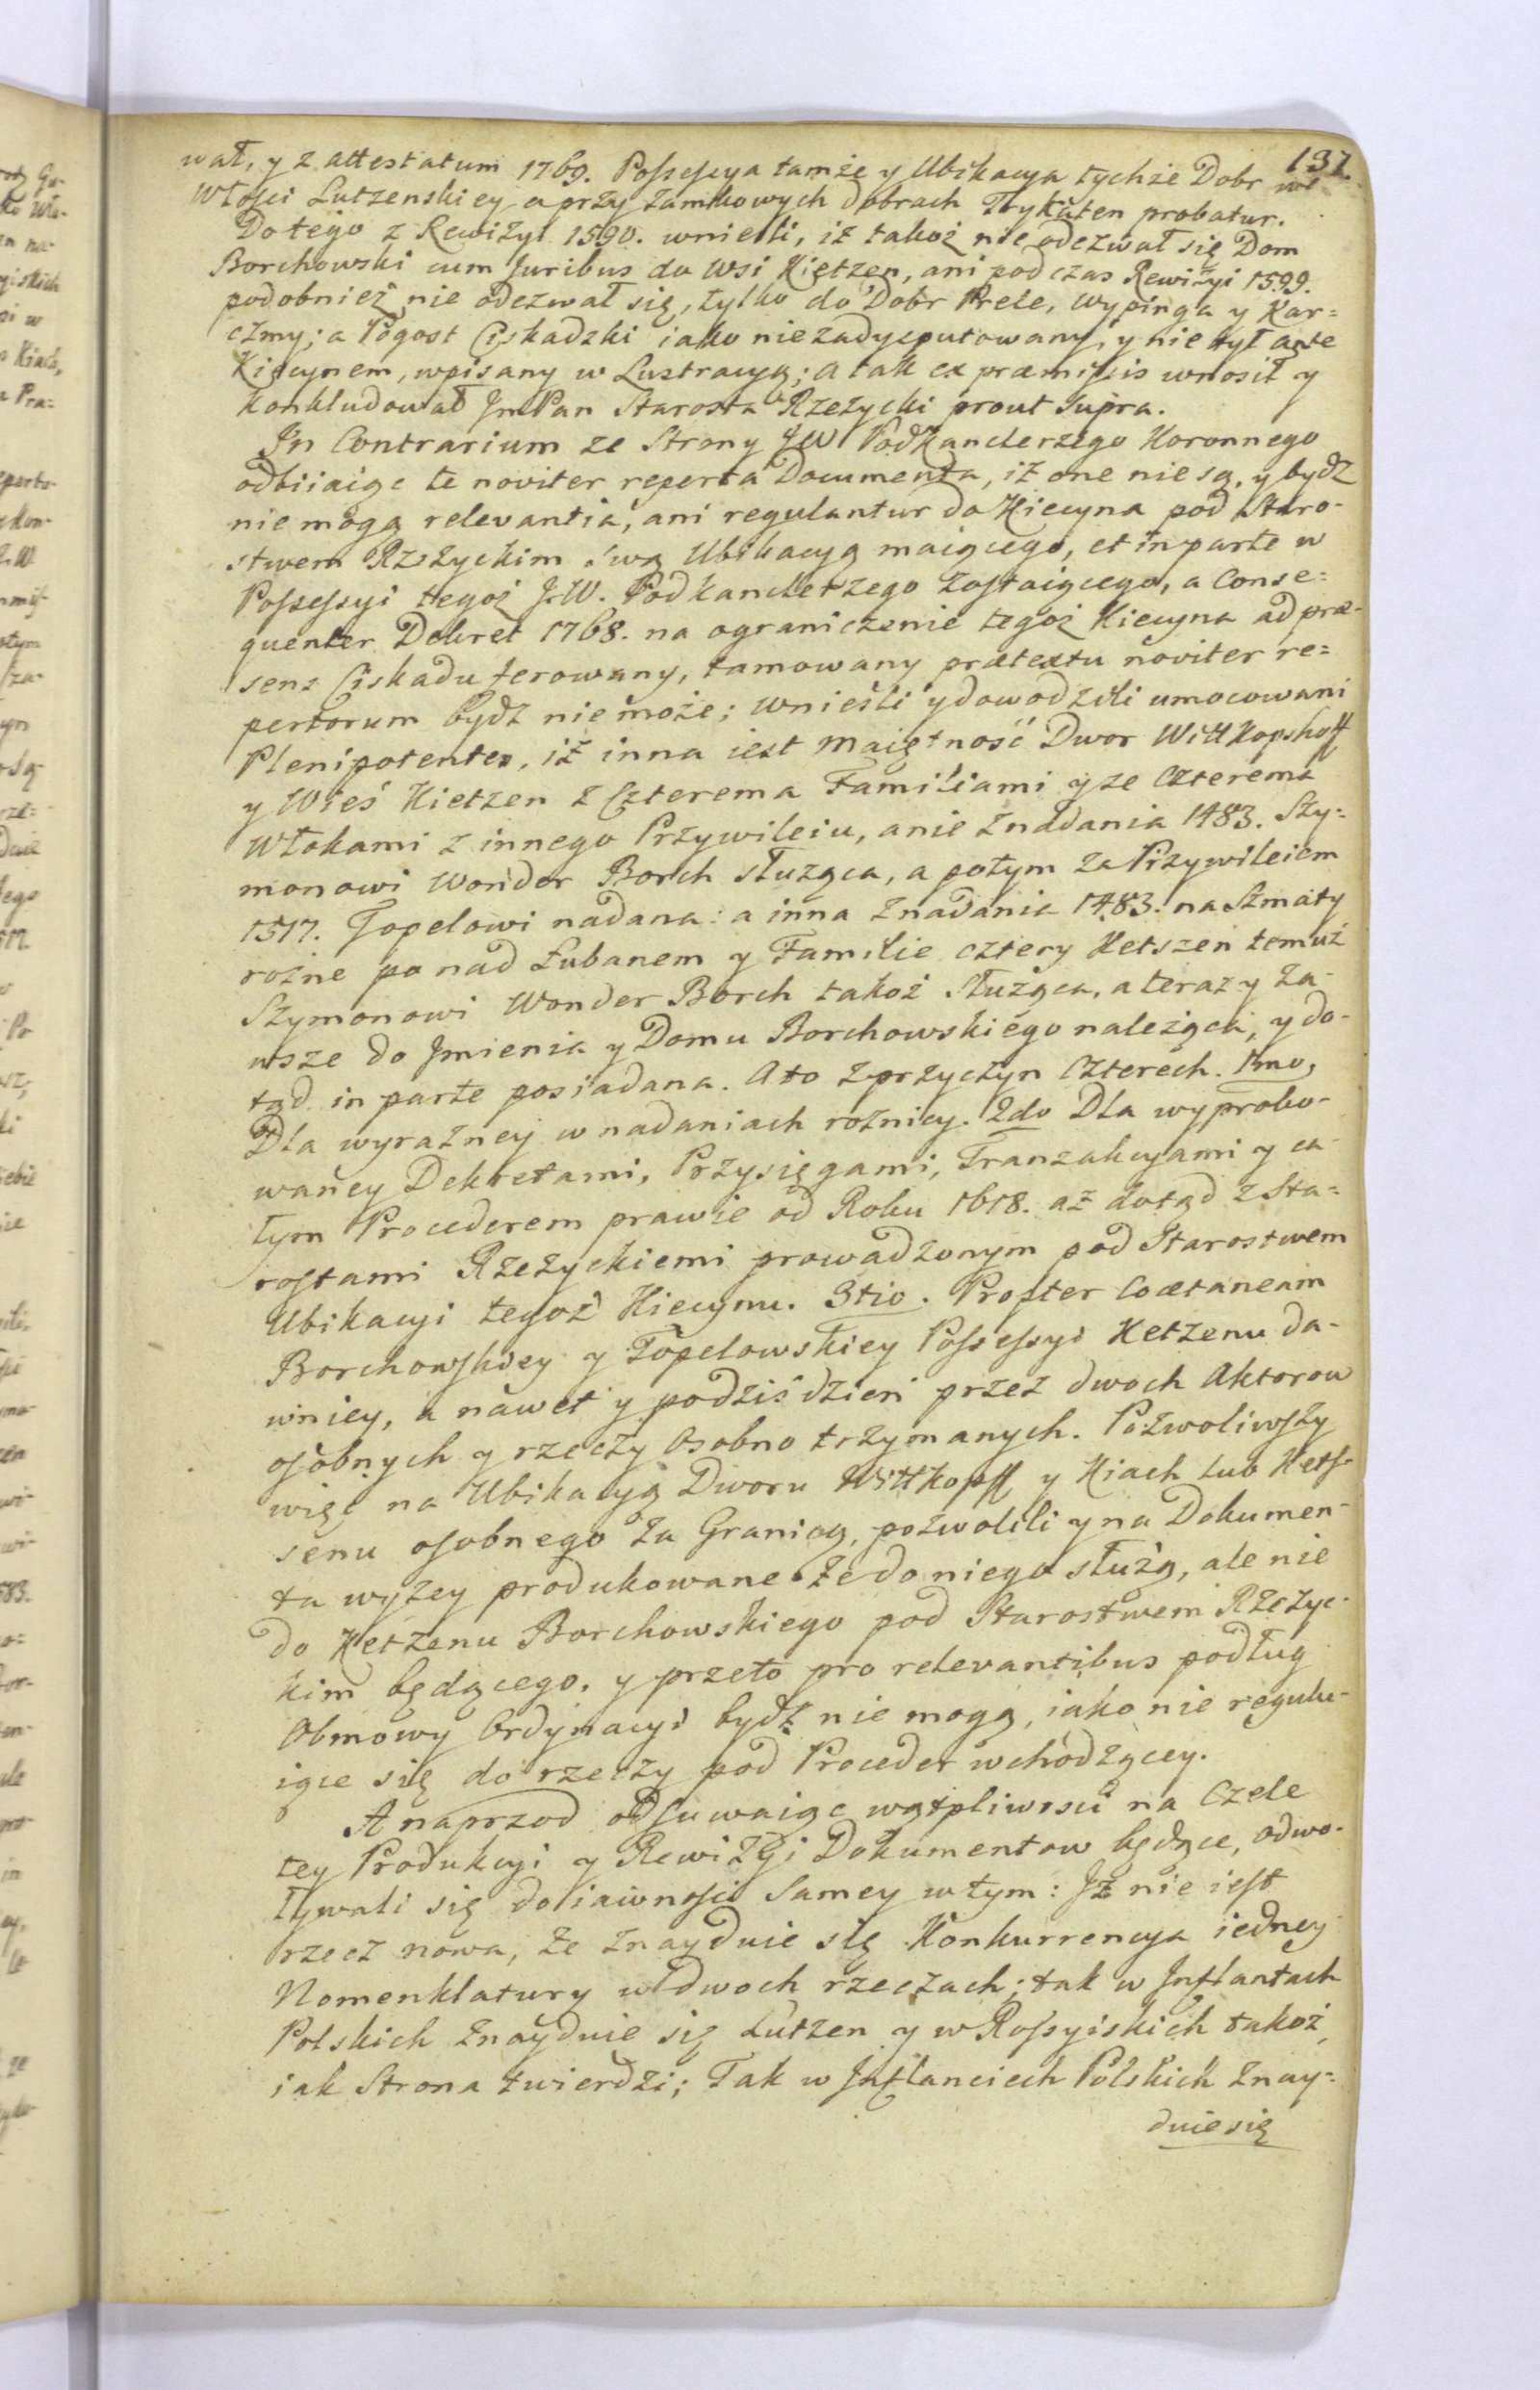 137
wał, y z attestatum 1769. Possessya tamże y Ubikacya tychże Dobr we
Włości Lutzenskiey a przy Zamkowych dobrach Trykaten probatur.
Do tego z Rewizyi 1590. wnieśli, iż takoż nie odezwał się Dom
Borchowski cum Juribus do Wsi Kietzen, ani podczas Rewizyi 1599.
podobnież nie odezwał się, tylko do Dobr Prele, Wypinga y Kar=
czmy; a Pogost Ciskadzki iako niezadysputowany, y nie był
Kiecynem, wpisany w Lustracyą; a tak ex præmissis wnosił y
konkludował JmPan Starosta Rzeżycki prout supra.
In Contrarium ze Strony JW Podkanclerzego Koronnego
odbiiaiąc te noviter reperta Documenta, iż one nie są, y bydź
nie mogą relevantia, ani regulantur do Kiecyna pod Staro-
stwem Rzeżyckim swą Ubikacyą maiącego, et in parte w
Possessyi tegoż J.W. Podkanclerzego zostaiącego, a Conse=
quenter Dekret 1768. na ograniczenie tegoż Kiecyna ad præ-
sens Ciskadu ferowany, tamowany prætextu noviter re=
pertorum bydź nie może; wnieśli y dowodzili umocowani
Plenipotenten, iż inna iest Maiętność Dwor Wittkopshoff
y Wieś Kietzen z Czterema Familiami y ze Czterema
Włokami z innego Przywileiu, a nie z nadania 1483. Szy=
monowi Wonder Borch służąca, a potym za Przywileiem
1517. Topelowi nadana: a inna z nadania 1483. na Szmaty
rożne ponad Łubanem y Familie cztery Ketszen temuż
Szymonowi Wonder Borch takoż służąca, a teraz y za-
wsze do Jmienia y Domu Borchowskiego należąca, y do-
tąd in parte posiadana. A to z przyczyn Czterech. 1mo,
Dla wyraźney w nadaniach rożnicy. 2do Dla wyprobo-
waney Dekretami, Przysięgami, Tranzakcyami y ca-
łym Procederem prawie od Roku 1618. aż dotąd z Sta=
rostami Rzeżyckiemi prowadzonym pod Starostwem
Ubikacyi tegoż Kiecynu. 3tio. Propter Coætaneam
Borchowskiey y Topelowskiey Possessyi Ketzenu da-
wniey, a nawet y podziś dzień przez dwoch Aktorow
osobnych y rzeczy osobno trzymanych. Pozwoliwszy
więc na Ubikacyą Dworu Wittkopff y Kiach lub Kets-
senu osobnego za Granicą, pozwolili y na Dokumen-
ta wyżey produkowane że do niego służą, ale nie
do Ketzenu Borchowskiego pod Starostwem Rzeżyc-
kim będącego, y przeto pro relevantibus podług
Obmowy Ordynacyi bydź nie mogą, iako nie regulu-
iące się do rzeczy pod Proceder wchodzącey.
A naprzod odsuwaiąc wątpliwości na Czele
tey Produkcyi y Rewizyi Dokumentow będące, odwo-
ływali się do iawności samey w tym: Jż nie iest
rzecz nowa, że znayduie się Konkurrencya iedney
Nomenklatury w dwoch rzeczach; tak w Jnflantach
Polskich znayduie się Lutzen y w Rossyiskich takoż,
iak Strona twierdzi; Tak w Jnflanciech Polskich znay=
duie się